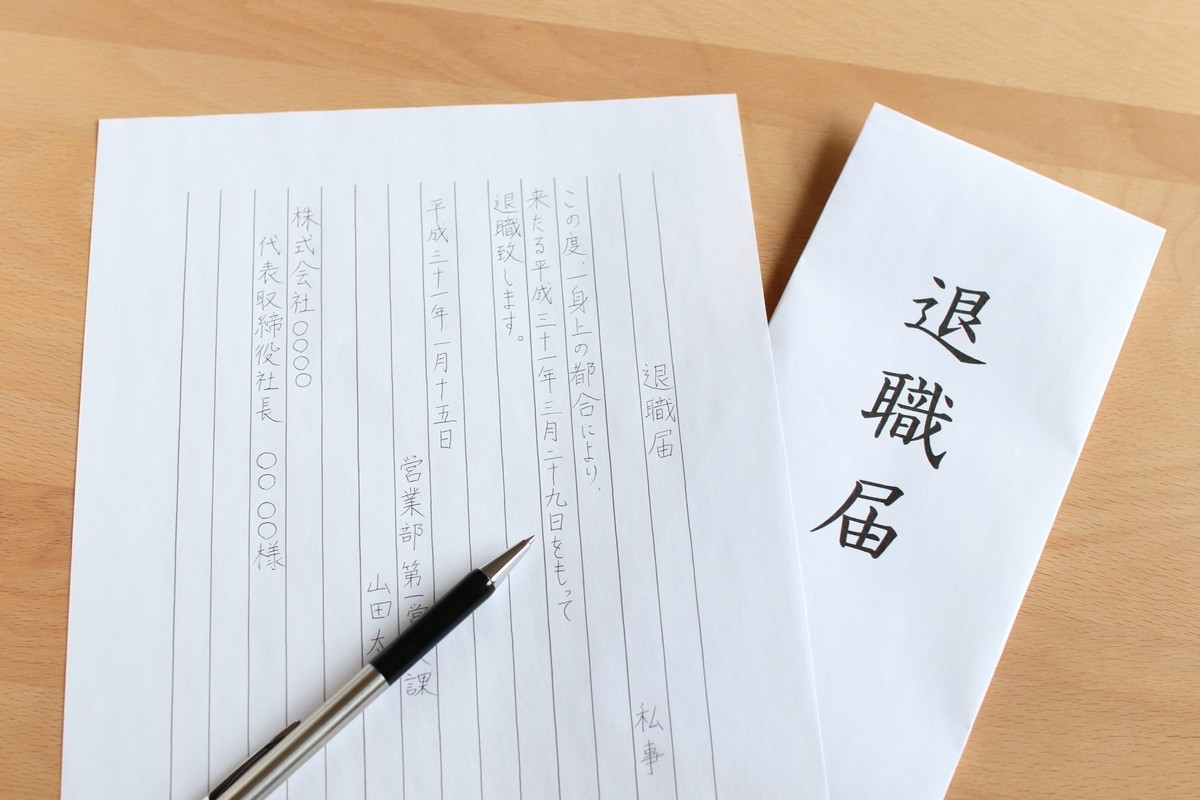 退職届
私事
この度、一身上の都合により、
来たる平成三十一年三月二十九日をもって
退職致します。
平成三十一年一月十五日
営業部 第一営 課
山田太
株式会社〇〇〇〇
代表取締役社長 〇〇 〇〇様
退職届